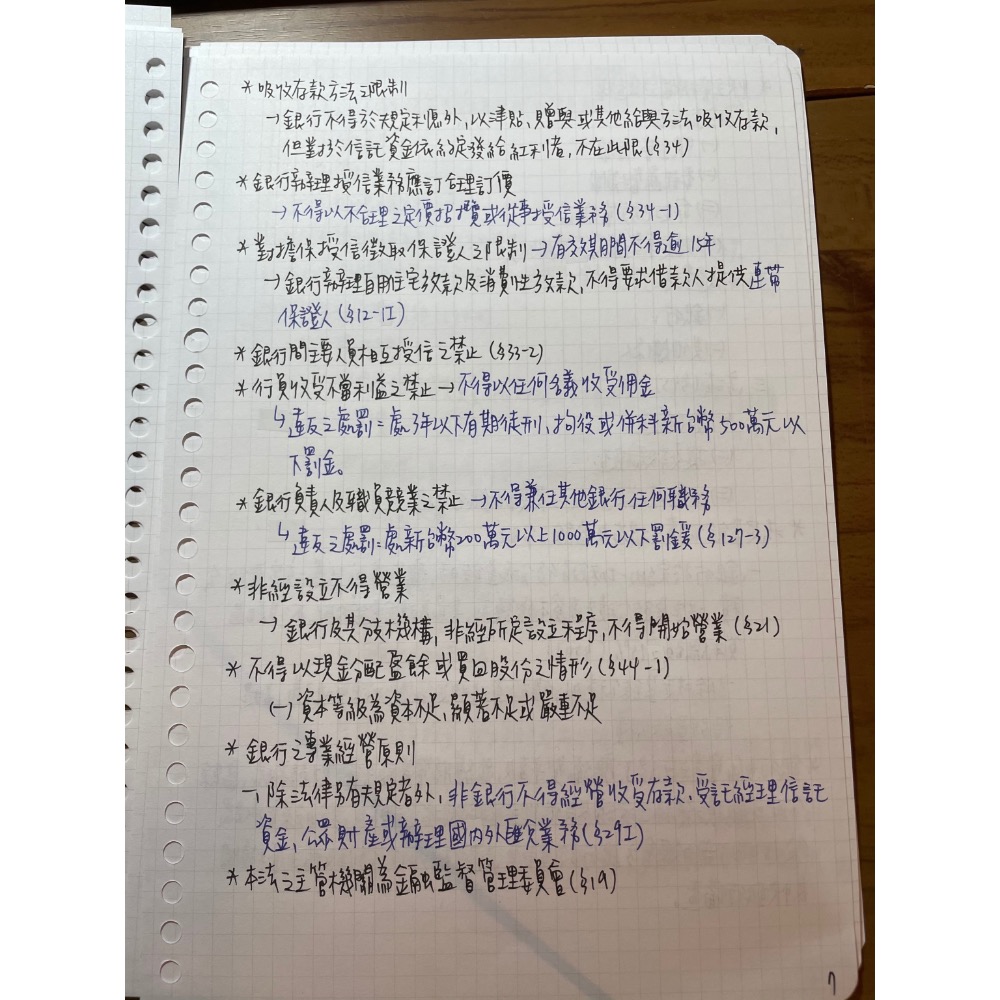 *吸收存款方法之限制
→銀行不得於規定利息外,以津貼、贈與或其他給與方法吸收存款,
但對於信託資金依約定發給紅利者,不在此限(§34)
*銀行辦理授信業務應訂合理訂價
→不得以不合理之定價招攬或從事授信業務(§34-1)
*對擔保授信徵取保證人之限制→有效期間不得逾15年
→銀行辦理自用住宅放款及消費性放款,不得要求借款人提供連帶
保證人(§12-1I)
*銀行間主要人員相互授信之禁止(§33-2)
*行員收受不當利益之禁止→不得以任何名義收受佣金
↳違反之處罰=處3年以下有期徒刑、拘役或併科新台幣500萬元以
下罰金。
*銀行負責人及職員競業之禁止→不得兼任其他銀行任何職務
↳違反之處罰=處新台幣200萬元以上1000萬元以下罰鍰(§127-3)
*非經設立不得營業
→銀行及其分支機構,非經所定設立程序,不得開始營業(§21)
*不得以現金分配盈餘或買回股份之情形(§44-1)
(一)資本等級為資本不足、顯著不足或嚴重不足
*銀行之專業經營原則
一、除法律另有規定者外,非銀行不得經營收受存款、受託經理信託
資金、公眾財產或辦理國內外匯兌業務(§29I)
*本法之主管機關為金融監督管理委員會(§19)
7